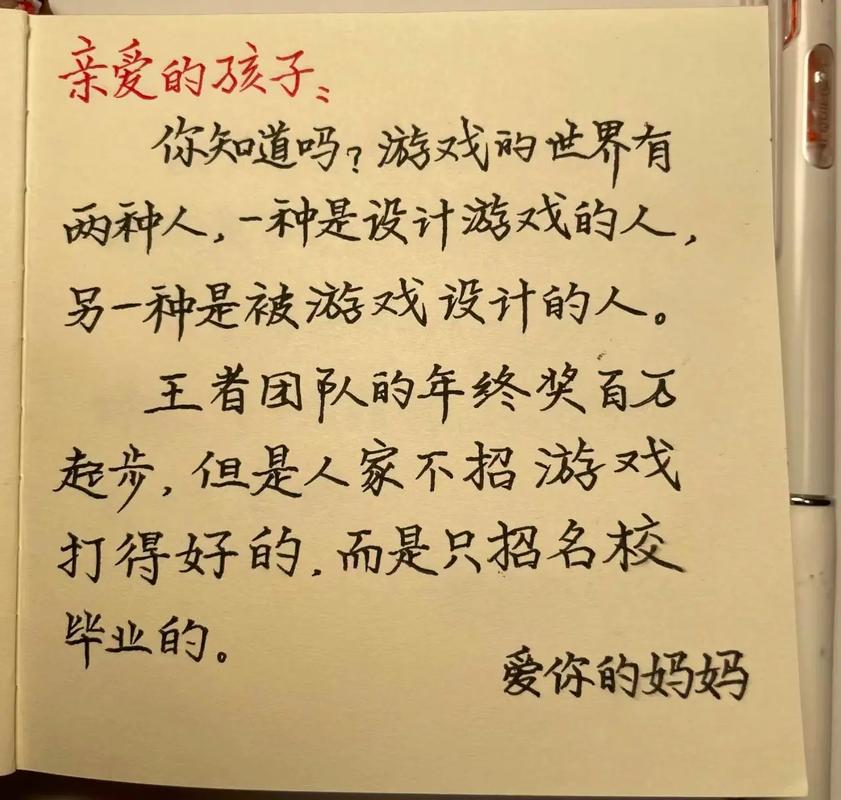 亲爱的孩子：
你知道吗？游戏的世界有
两种人，一种是设计游戏的人，
另一种是被游戏设计的人。
王者团队的年终奖百万
起步，但是人家不招游戏
打得好的，而是只招名校
毕业的。
爱你的妈妈